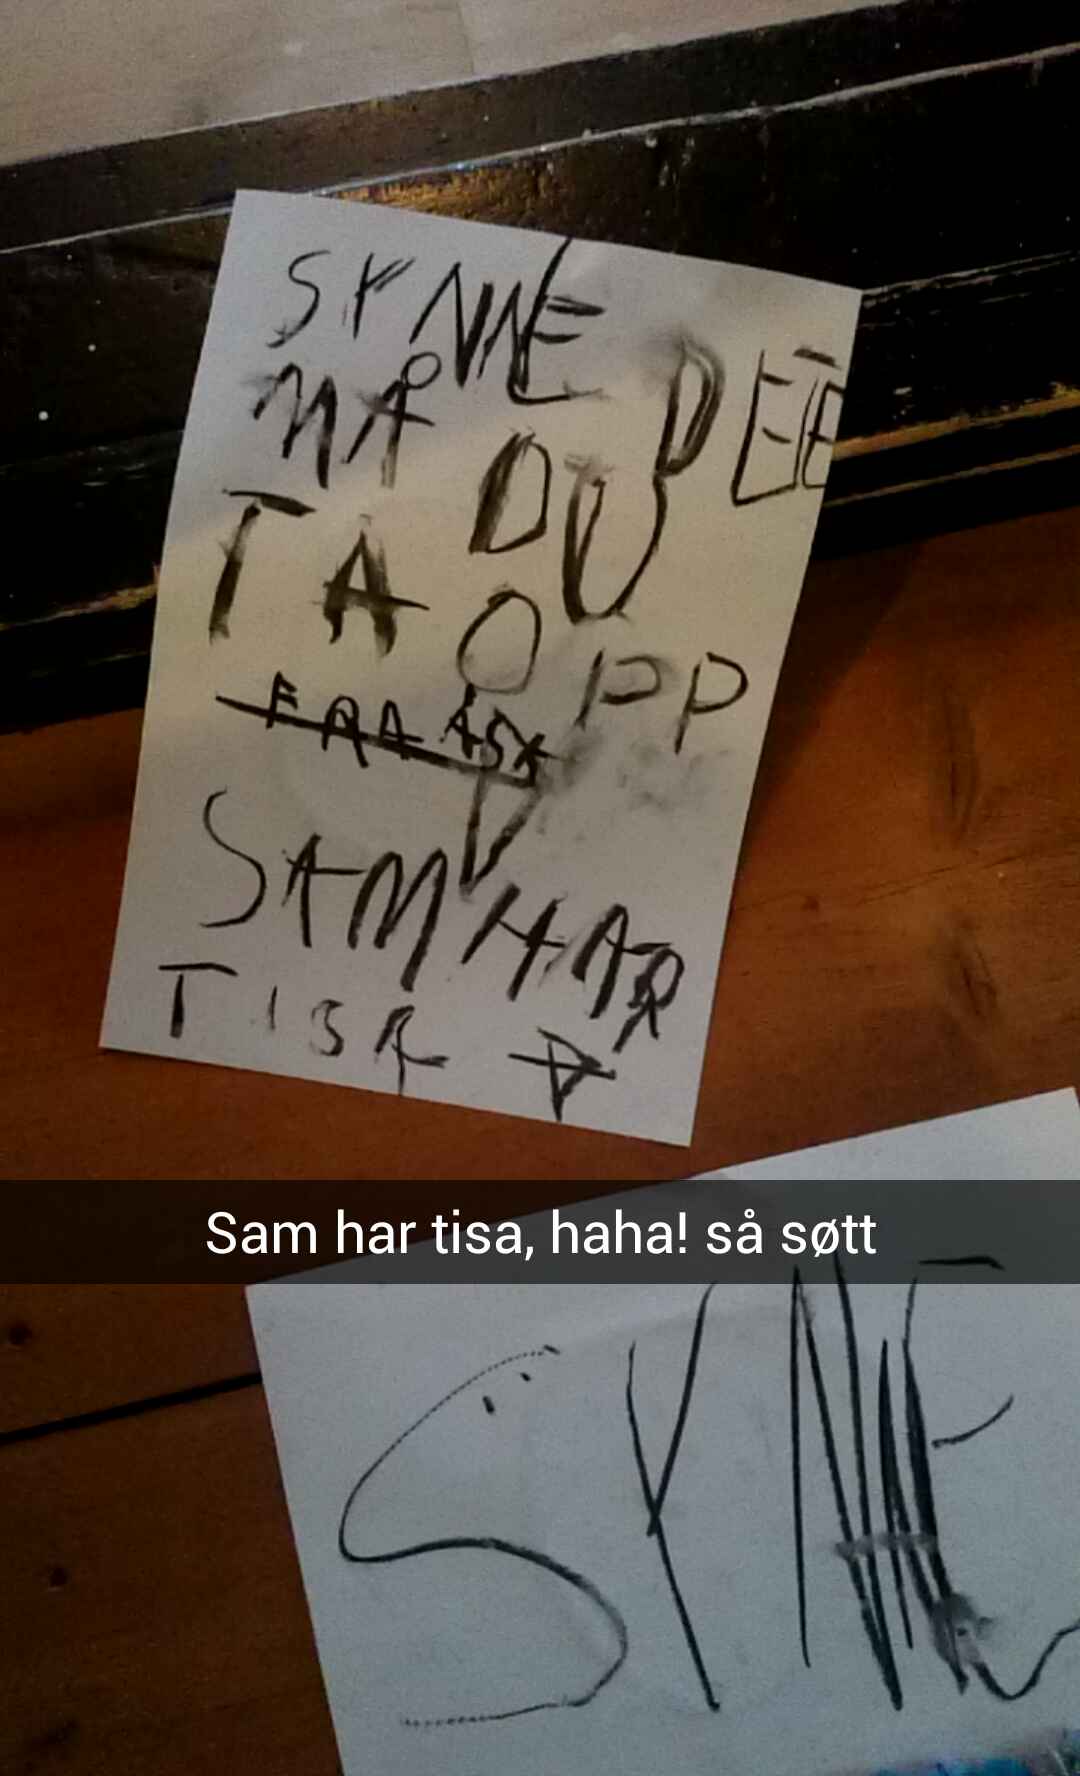 SYNNE
MÅ DU DEE
TA OPP
FRA ASK
SAM HAR
TISA
Sam har tisa, haha! så søtt
SYNNE